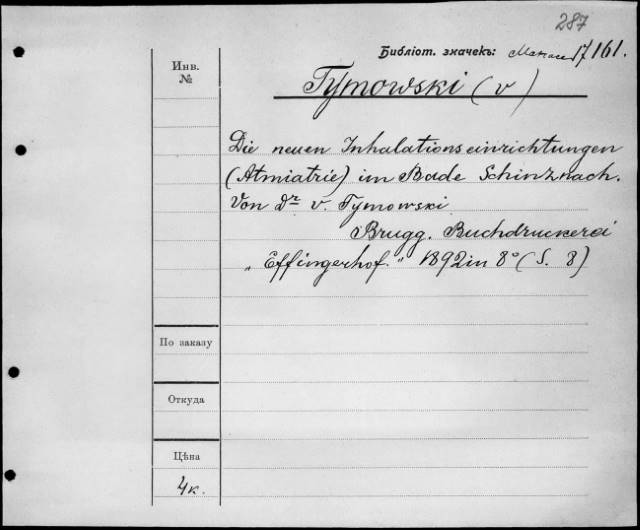 287
Библіот. значекъ: 17/161.
Инв.
№
Tymowski (v)
Die neuen Inhalationseinrichtungen
(Atmiatrie) im Bade Schinznach.
Von Dr v. Tymowski
Brugg. Buchdruckerei
„Effingerhof.“ 1892 in 8° (S. 8)
По заказу
Откуда
Цѣна
4к.